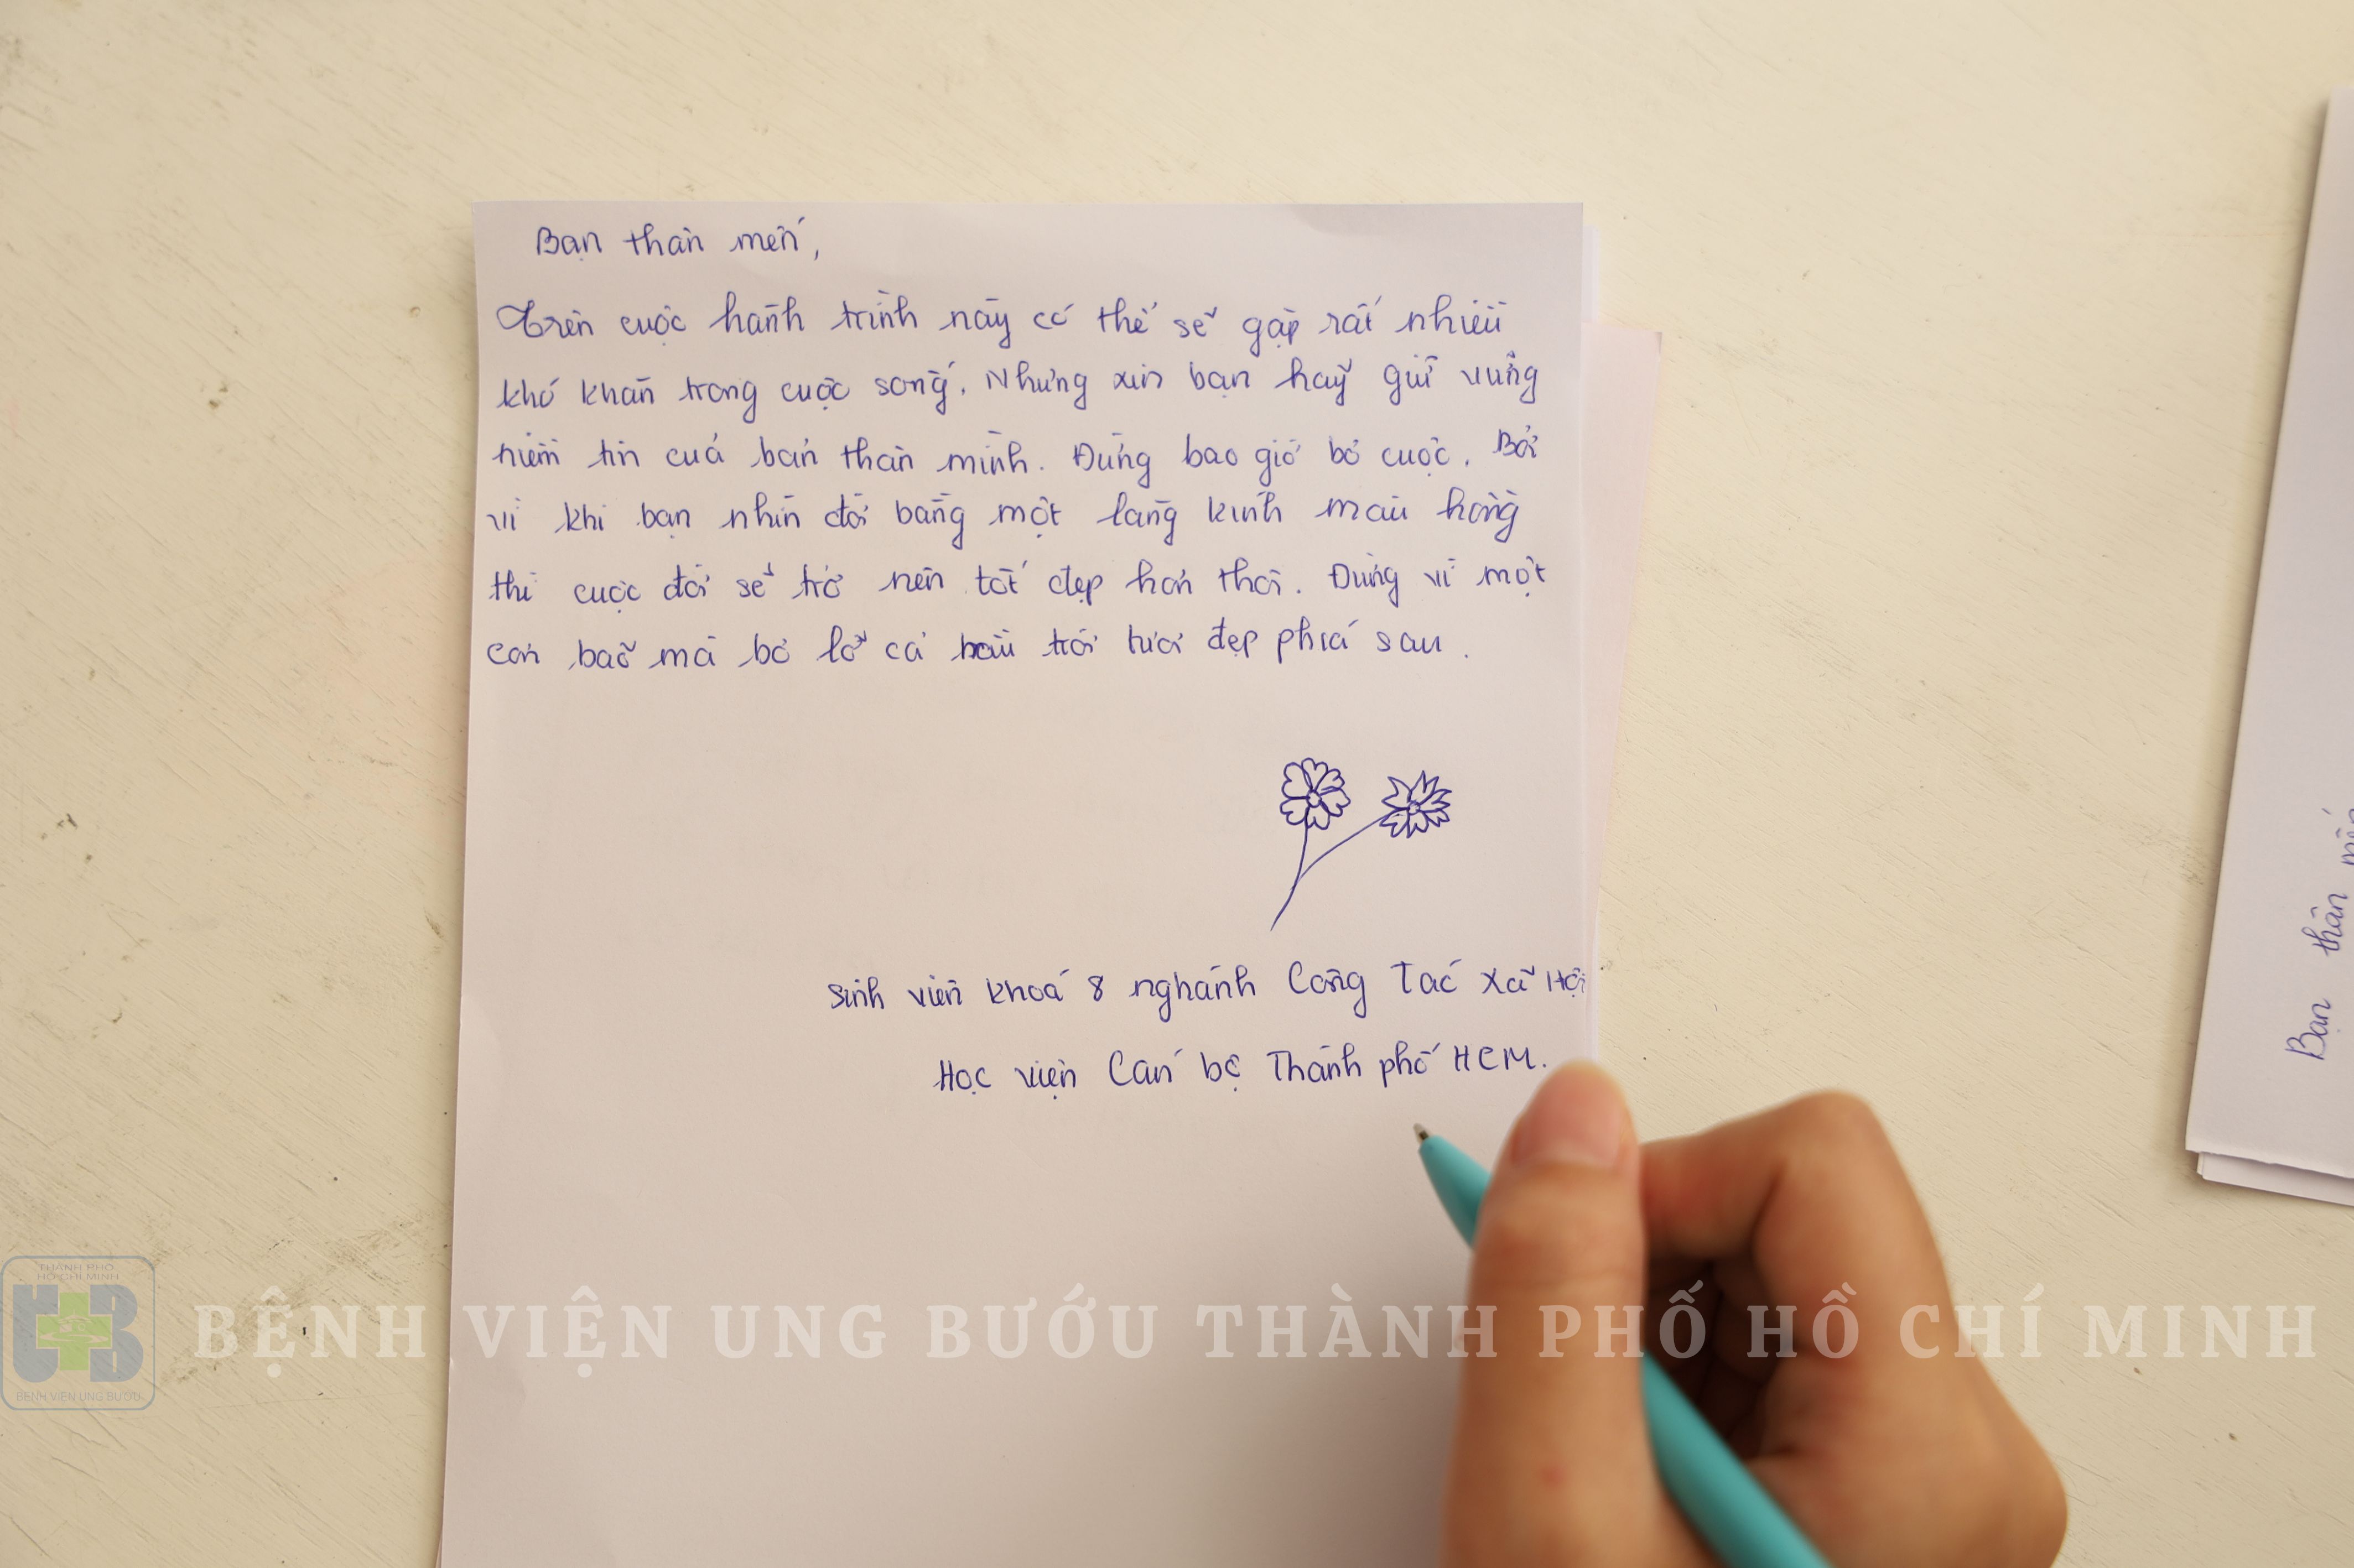 Bạn thân mến,
Trên cuộc hành trình này có thể sẽ gặp rất nhiều
khó khăn trong cuộc sống. Nhưng xin bạn hãy giữ vững
niềm tin của bản thân mình. Đừng bao giờ bỏ cuộc. Bởi
vì khi bạn nhìn đời bằng một lăng kính màu hồng
thì cuộc đời sẽ trở nên tốt đẹp hơn thôi. Đừng vì một
cơn bão mà bỏ lỡ cả bầu trời tươi đẹp phía sau.
Sinh viên khoá 8 nghành Công Tác Xã Hội
Học viện Cán bộ Thành phố HCM.
Bạn thân mến
THÀNH PHỐ
HỒ CHÍ MINH
UB
BỆNH VIỆN UNG BƯỚU
BỆNH VIỆN UNG BƯỚU THÀNH PHỐ HỒ CHÍ MINH